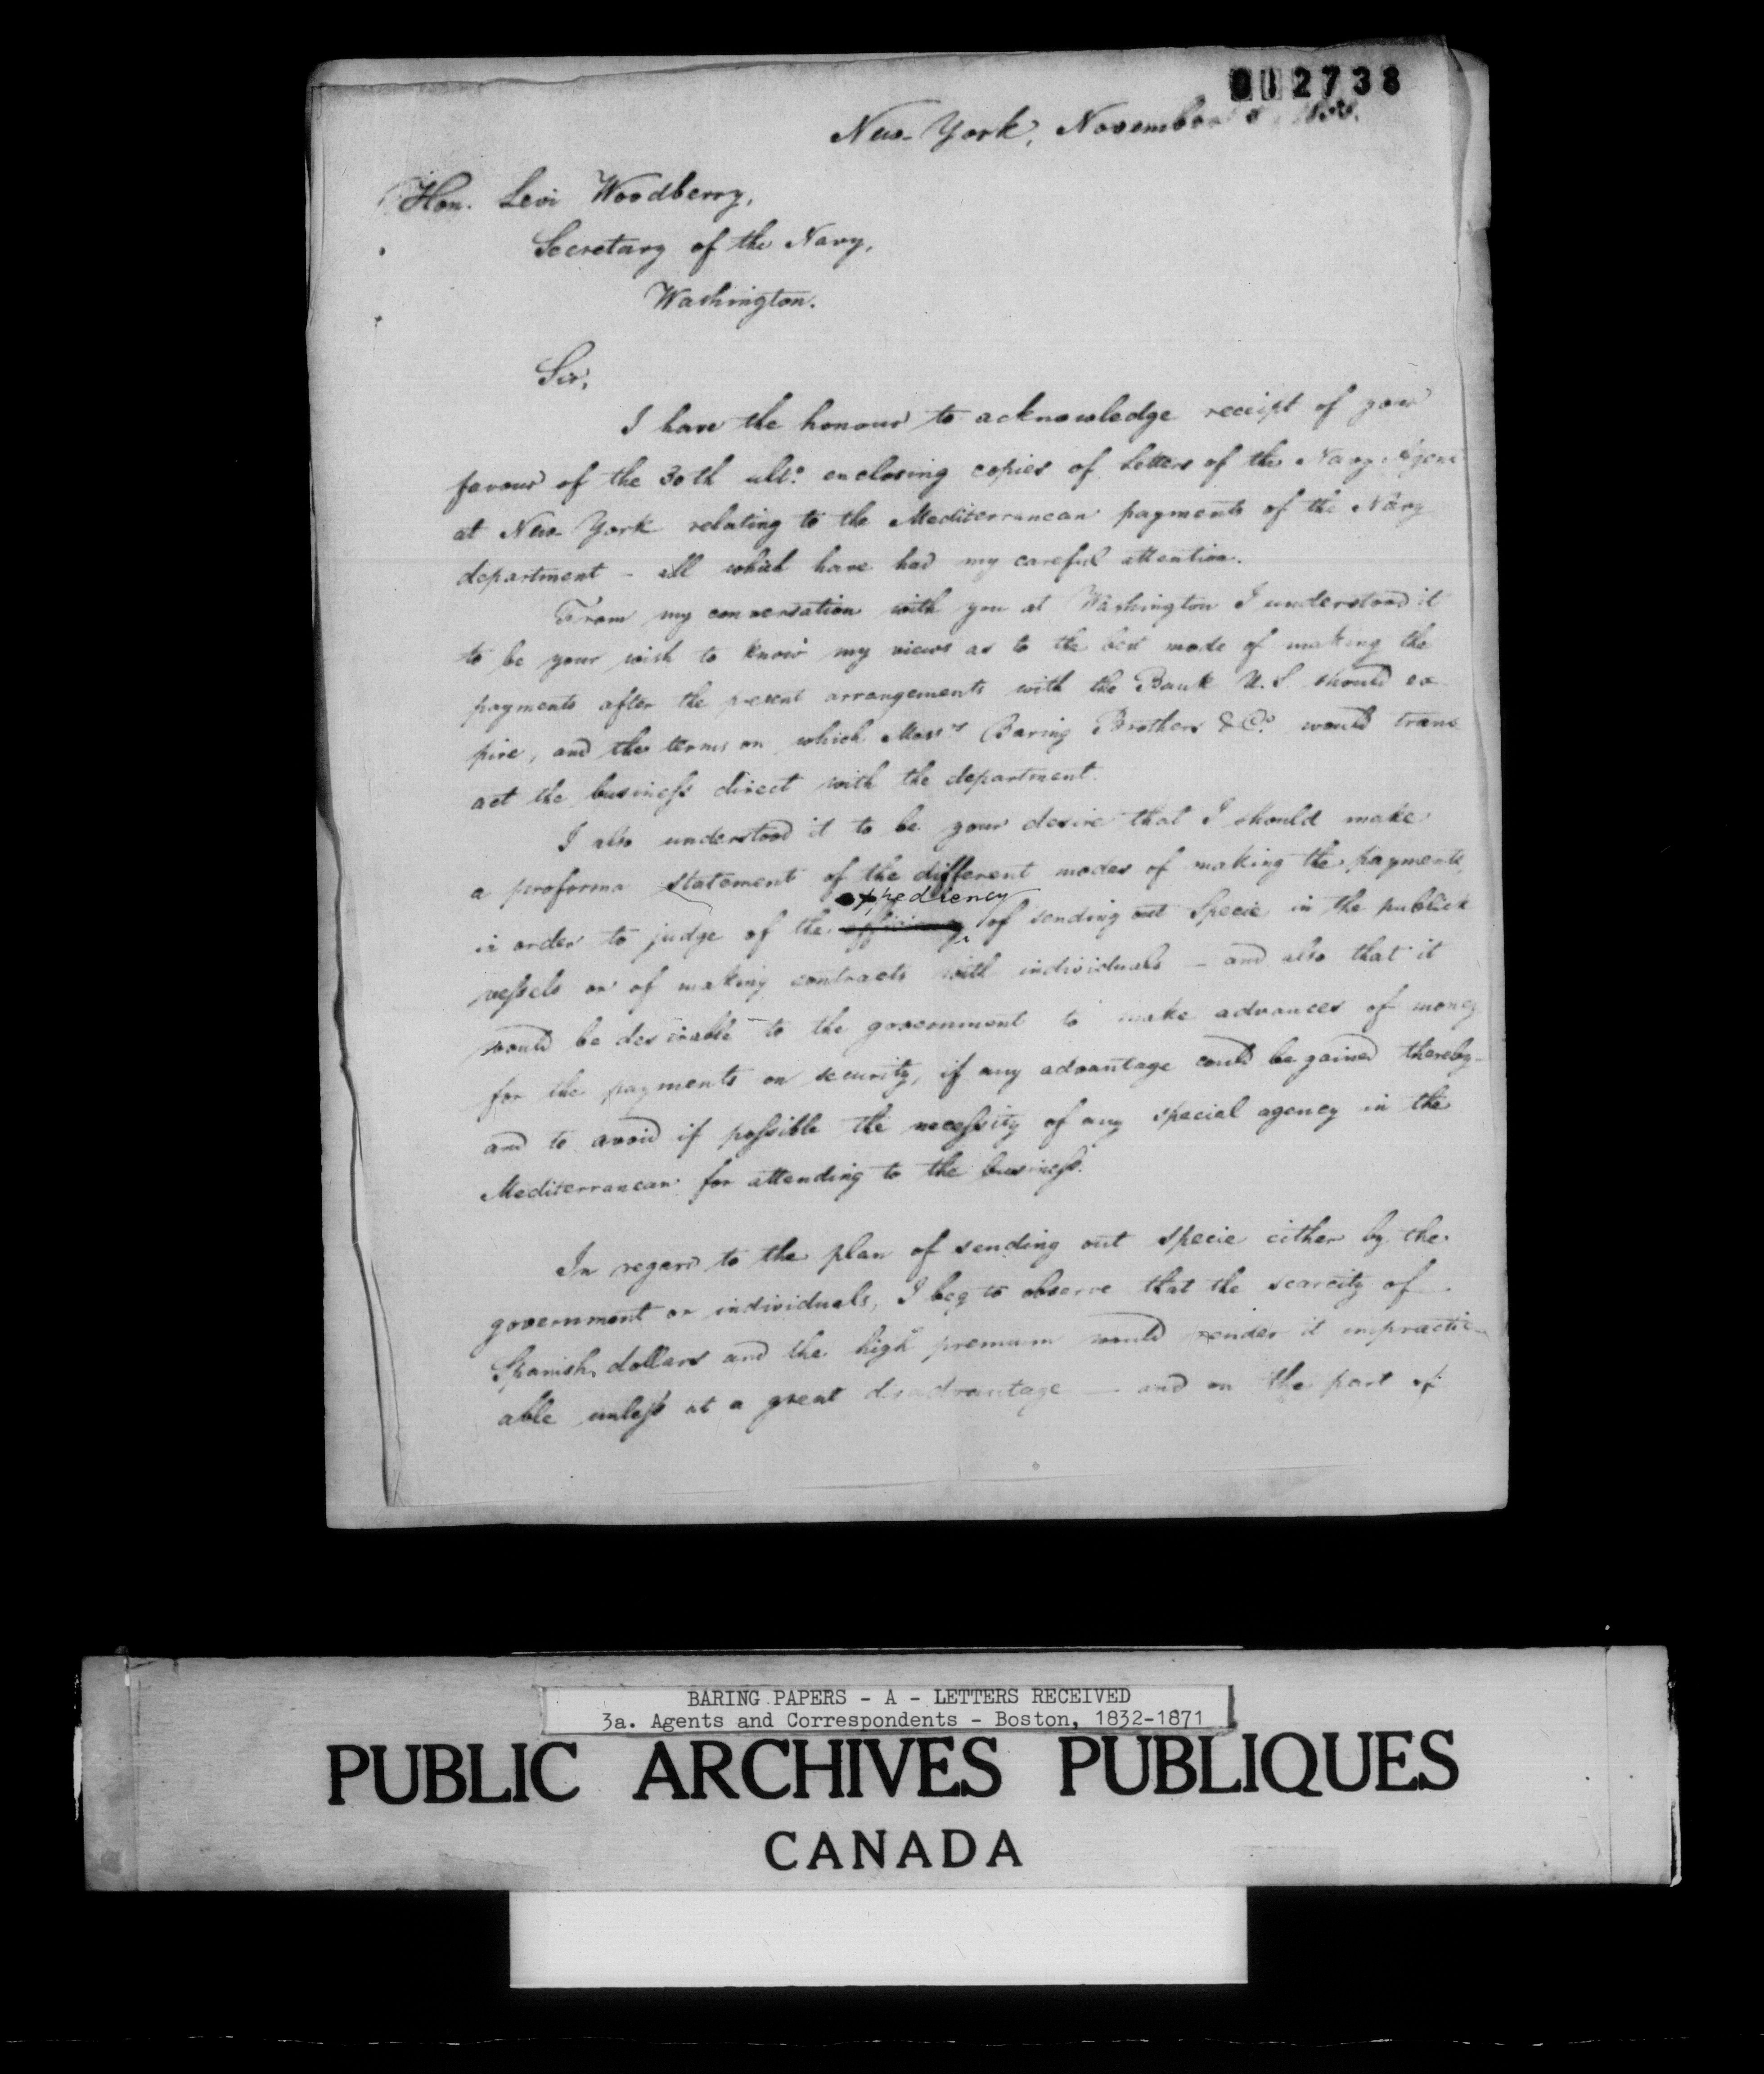 012738
New-York, November
Hon. Levi Woodberry,
Secretary of the Navy,
Washington.
Sir,
I have the honour to acknowledge receipt of your
favour of the 30th ulto. enclosing copies of Letters of the Navy Agent
at New York relating to the Mediterranean payments of the Navy
department - all which have had my careful attention.
From my conversation with you at Washington I understood it
to be your wish to know my views as to the best mode of making the
payments after the present arrangements with the Bank U.S. should ex-
pire, and the terms on which Messrs Baring Brothers & Co. would trans
act the business direct with the department.
I also understood it to be your desire that I should make
a proforma statement of the different modes of making the payments,
expediency
in order to judge of the efficiency of sending out Specie in the publick
vessels or of making contracts with individuals - and also that it
would be desirable to the government to make advances of money
for the payments on security, if any advantage could be gained thereby -
and to avoid if possible the necessity of any special agency in the
Mediterranean for attending to the business.
In regard to the plan of sending out specie either by the
government or individuals, I beg to observe that the scarcity of
Spanish dollars and the high premium would render it impractic-
able unless at a great disadvantage - and on the part of
BARING PAPERS - A - LETTERS RECEIVED
3a. Agents and Correspondents - Boston, 1832-1871
PUBLIC ARCHIVES PUBLIQUES
CANADA